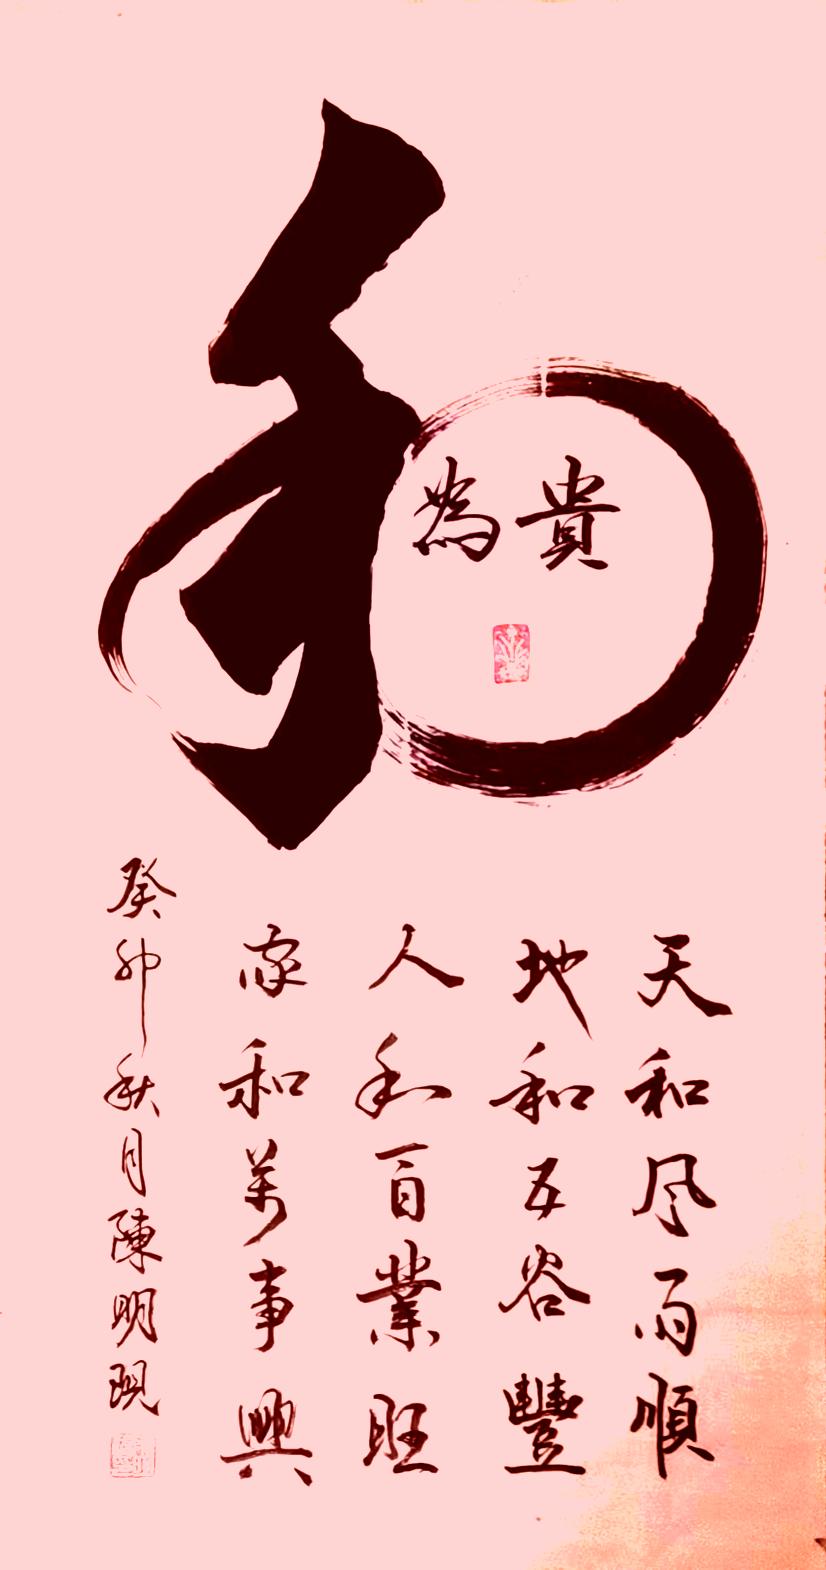 和
為貴
天和风雨順
地和五谷豐
人和百業旺
家和萬事興
癸卯秋月陳明現